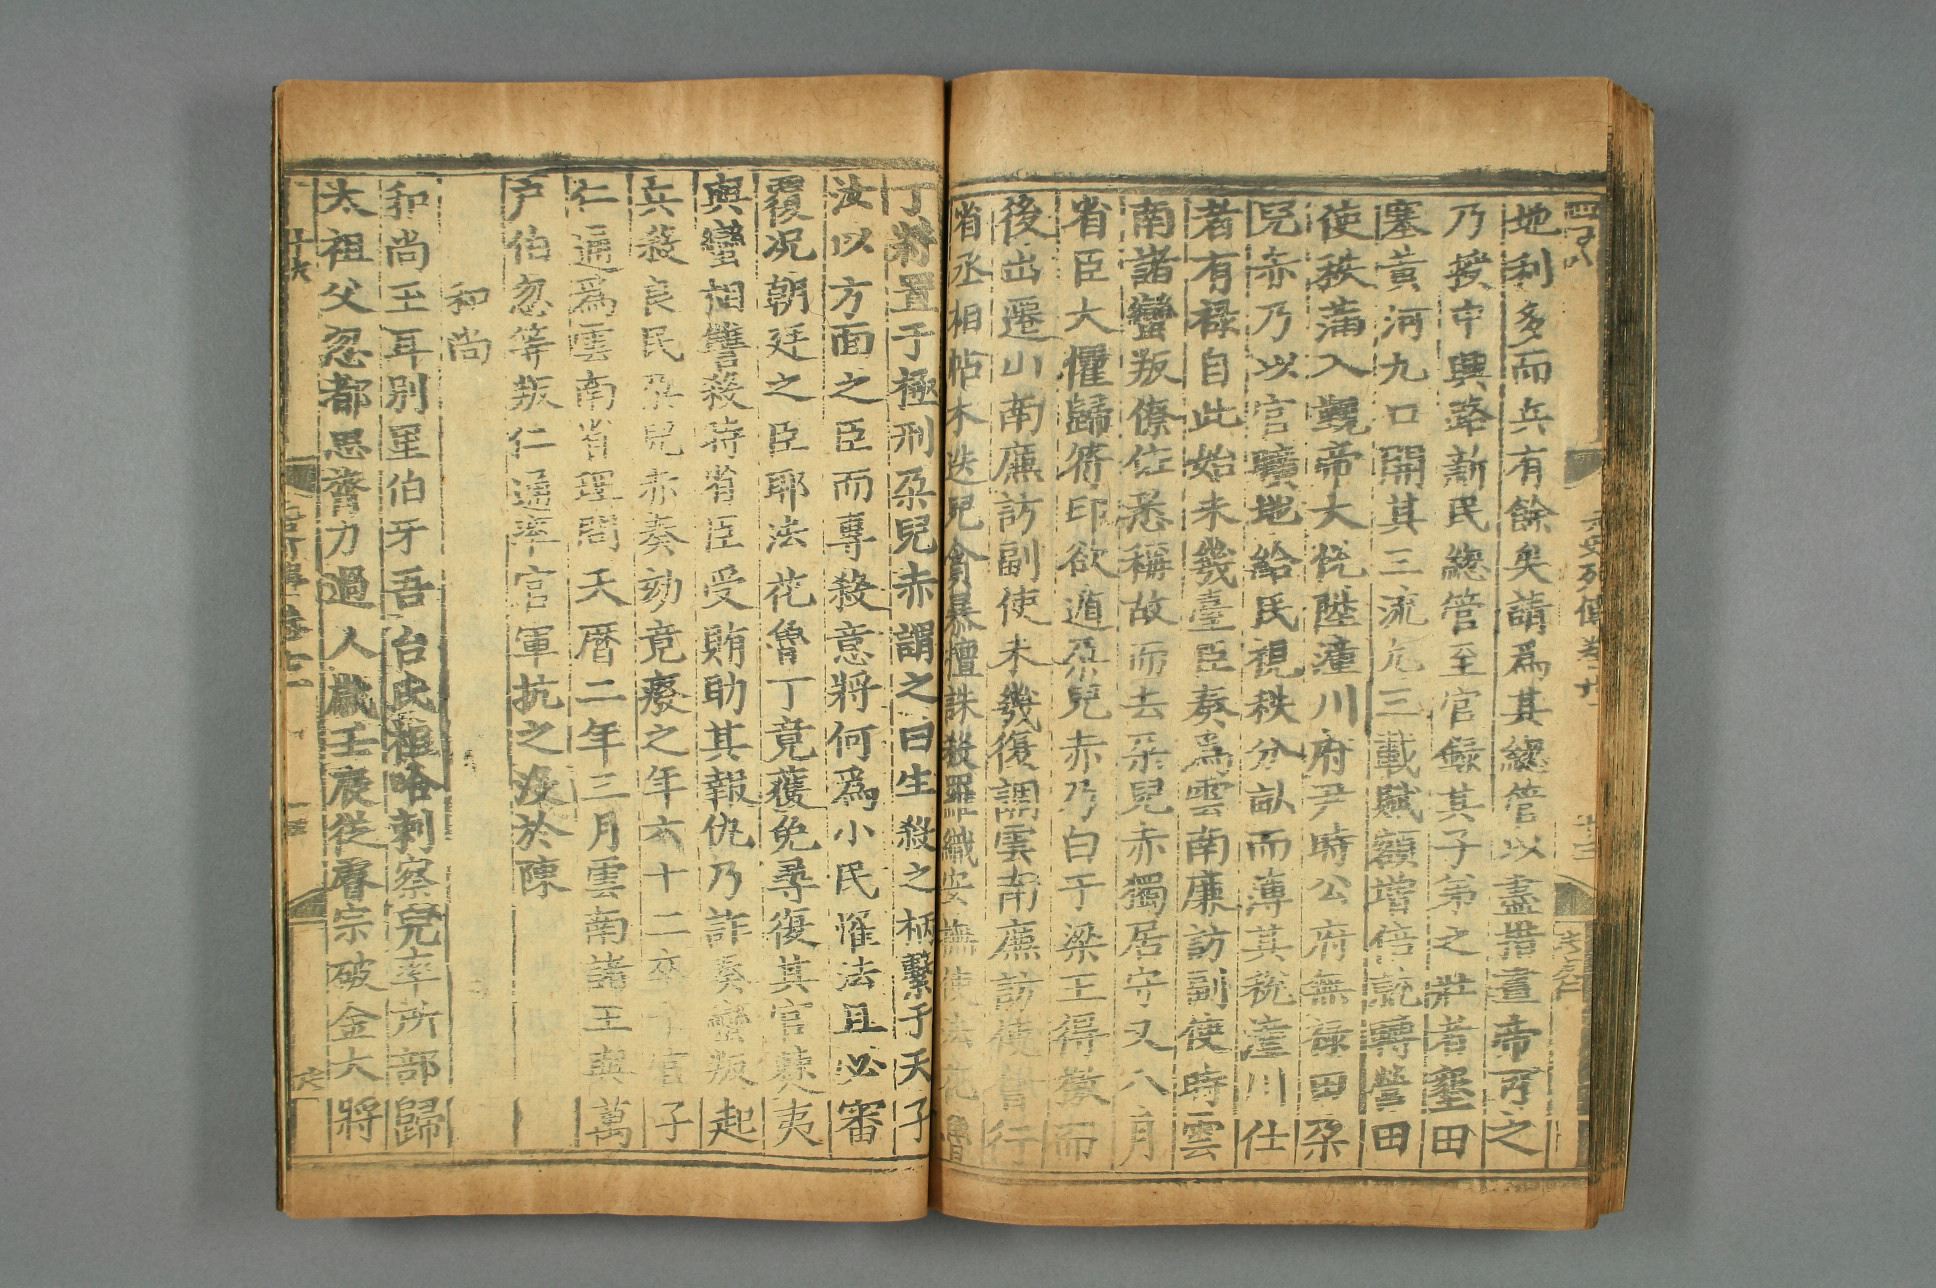 地利多而兵有餘矣請爲其總管以盡措畫帝可之
乃授中興路新民總管至官錄其子弟之壯者墾田
塞黃河九口開其三流凡三載賦額增倍就轉營田
使秩滿入覲帝大悅陞潼川府尹時公府無祿田朶
兒赤乃以官曠地給民視秩分畝而薄其稅潼川仕
者有祿自此始未幾臺臣奏爲雲南廉訪副使時雲
南諸蠻叛僚佐悉稱故而去朶兒赤獨居守又八月
省臣大懼歸符印欲遁朶兒赤乃白于梁王得檄而
後出遷山南廉訪副使未幾復調雲南廉訪使會行
省丞相帖木迭兒貪暴擅誅殺羅織安撫使法花魯
丁將置于極刑朶兒赤謂之曰生殺之柄繫于天子
汝以方面之臣而專殺意將何爲小民罹法且必審
覆况朝廷之臣耶法花魯丁竟獲免尋復其官蒙人夷
與蠻相讐殺時省臣受賄助其報仇乃詐奏蠻叛起
兵殺良民朶兒赤奏劾竟廢之年六十二卒于官子
仁通爲雲南省理問天曆二年三月雲南諸王與萬
户伯忽等叛仁通率官軍抗之沒於陳
和尚
和尚玉耳別里伯牙吾台氏祖哈剌察兒率所部歸
太祖父忽都思膂力過人歲壬辰從睿宗破金大將